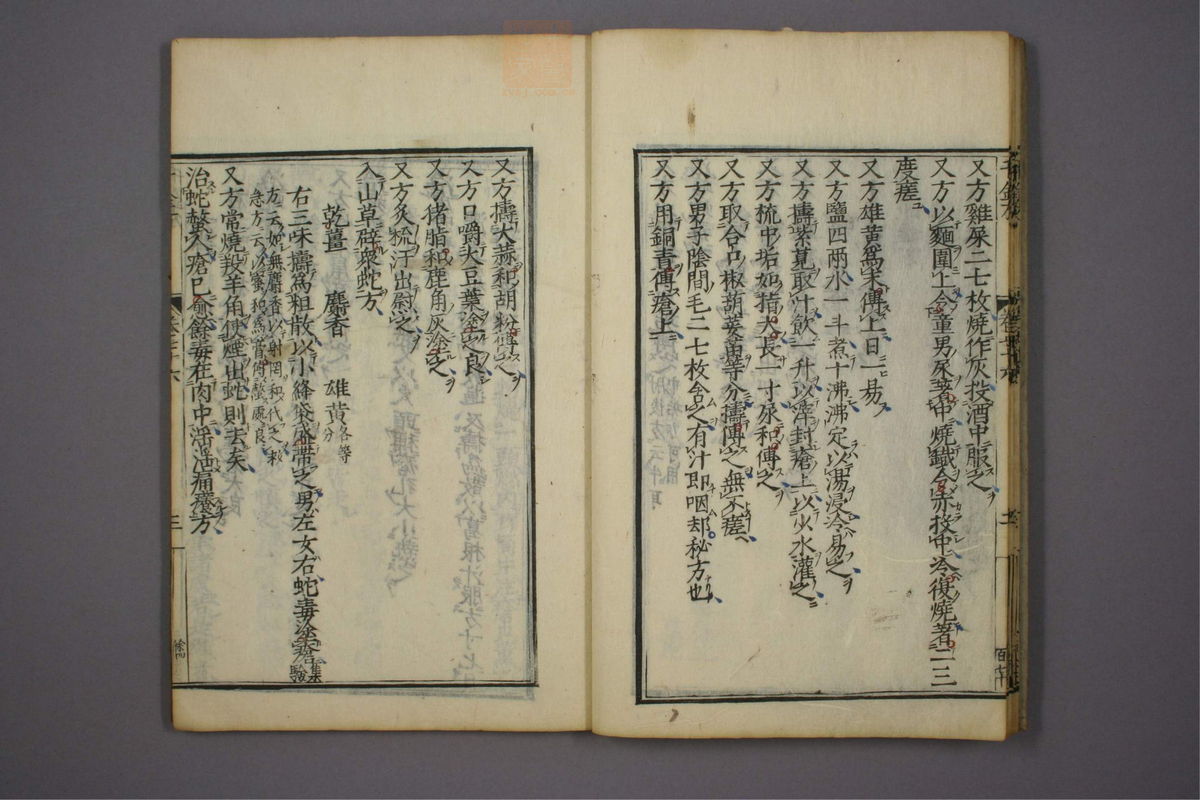 又方雞屎二七枚燒作灰投酒中服之
又方以麵圍上令童男尿著中燒鐵令赤投中冷復燒著二三
度瘥
又方雄黃爲末傅上日一易
又方鹽四兩水一斗煮十沸沸定以湯浸冷易之
又方擣紫莧取汁飲一升以滓封瘡上以少水灌之
又方梳中垢如指大長一寸尿和傅之
又方取合口椒葫荽苗等分擣傅之無不瘥
又方男子陰間毛二七枚含之有汁即咽却秘方也
又方用銅青傅瘡上
又方擣大蒜和胡粉傅之
又方口嚼大豆葉塗之良
又方猪脂和鹿角灰塗之
又方炙梳汗出慰之
入山草辟衆蛇方
乾薑 麝香 雄黃各等分
右三味擣爲粗散以小絳袋盛帶之男左女右蛇毒塗瘡集驗
方云如無麝香以射罔和代之救
急方云以蜜和爲膏傅螫處良
又方常燒羖羊角使煙出蛇則去矣
治蛇螫人瘡已愈餘毒在肉中淫淫痛癢方